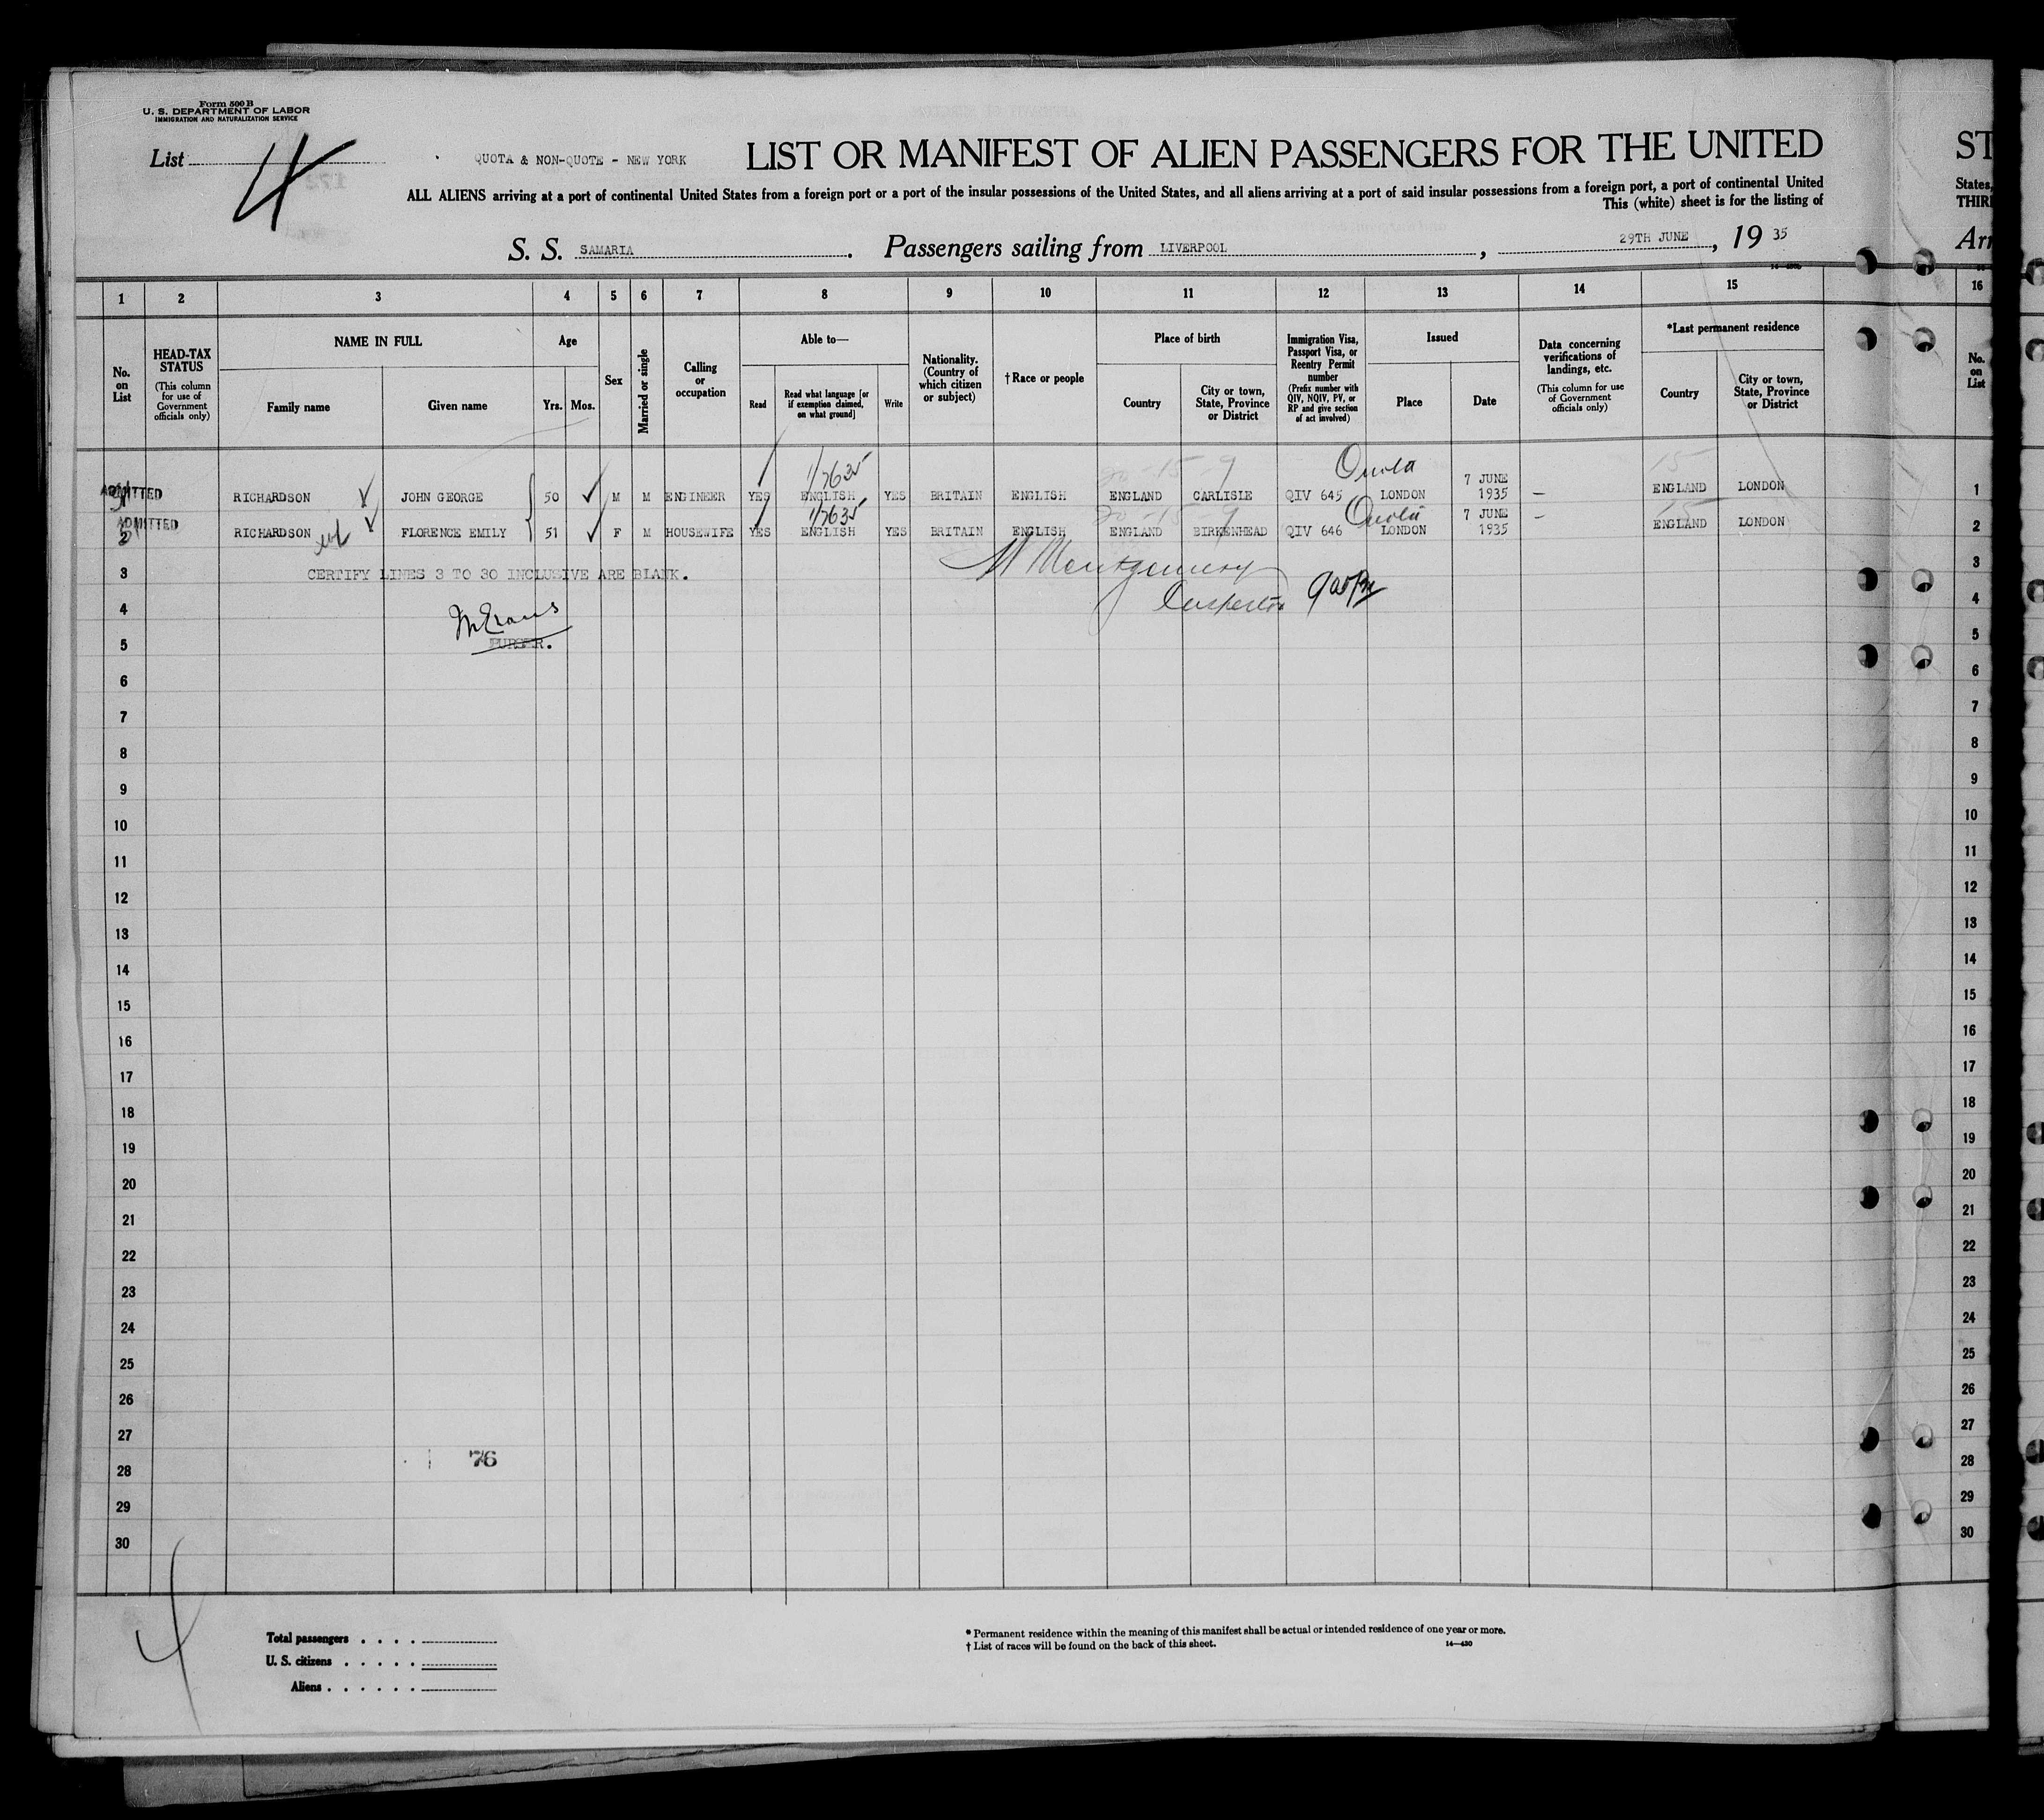 Form 500 B
U. S. DEPARTMENT OF LABOR
IMMIGRATION AND NATURALIZATION SERVICE
List 4
QUOTA & NON-QUOTE - NEW YORK
LIST OR MANIFEST OF ALIEN PASSENGERS FOR THE UNITED
ALL ALIENS arriving at a port of continental United States from a foreign port or a port of the insular possessions of the United States, and all aliens arriving at a port of said insular possessions from a foreign port, a port of continental United
This (white) sheet is for the listing of
S. S. SAMARIA. Passengers sailing from LIVERPOOL, 29TH JUNE, 19 35
ST
States,
THIR
Arr
1 2 3 4 5 6 7 8 9 10 11 12 13 14 15 16
No. on List
HEAD-TAX STATUS (This column for use of Government officials only)
NAME IN FULL
Family name
Given name
Age
Yrs. Mos.
Sex
Married or single
Calling or occupation
Able to—
Read
Read what language [or if exemption claimed, on what ground]
Write
Nationality. (Country of which citizen or subject)
† Race or people
Place of birth
Country
City or town, State, Province or District
Immigration Visa, Passport Visa, or Reentry Permit number (Prefix number with QIV, NQIV, PV, or RP and give section of act involved)
Issued
Place
Date
Data concerning verifications of landings, etc. (This column for use of Government officials only)
*Last permanent residence
Country
City or town, State, Province or District
No. on List
1/7635 Quota
20-15-9 15
ADMITTED RICHARDSON JOHN GEORGE 50 M M ENGINEER YES ENGLISH YES BRITAIN ENGLISH ENGLAND CARLISLE QIV 645 LONDON 7 JUNE 1935 — ENGLAND LONDON 1
1/7635 Quota
20-15-9 15
ADMITTED 2 RICHARDSON FLORENCE EMILY 51 F M HOUSEWIFE YES ENGLISH YES BRITAIN ENGLISH ENGLAND BIRKENHEAD QIV 646 LONDON 7 JUNE 1935 — ENGLAND LONDON 2
3 CERTIFY LINES 3 TO 30 INCLUSIVE ARE BLANK. Montgomery 3
4 4
5 PURSER. 5
6 6
7 7
8 8
9 9
10 10
11 11
12 12
13 13
14 14
15 15
16 16
17 17
18 18
19 19
20 20
21 21
22 22
23 23
24 24
25 25
26 26
27 27
76
28 28
29 29
30 30
4
Total passengers . . . .
U. S. citizens . . . . .
Aliens . . . . . .
* Permanent residence within the meaning of this manifest shall be actual or intended residence of one year or more.
† List of races will be found on the back of this sheet.
14—430